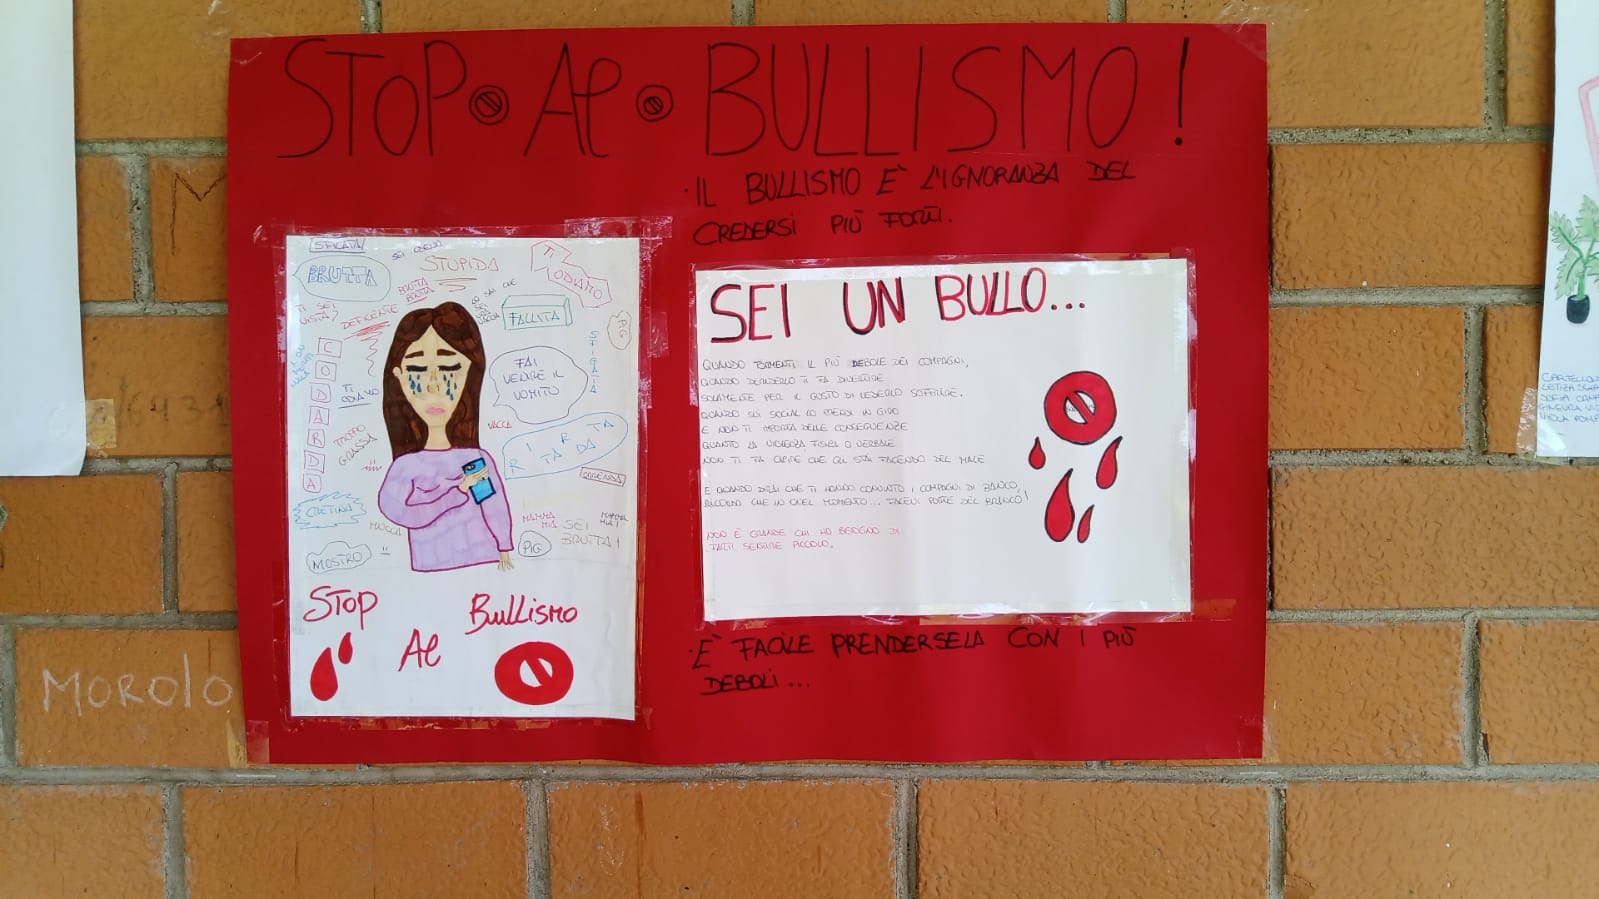 STOP Al BULLISMO!
· IL BULLISMO E' L'IGNORANZA DEL
CREDERSI PIÙ FORTI.
SFIGATA
BRUTTA
STUPIDA
TI
ODIAMO
SEI
DEFICENTE
FALLITA
PIG
STIGATA
CODARDA
TI
ODIAMO
GRASSA
FAI
VENIRE IL
VOMITO
VACCA
RITARTATA
CRETINA
MUCCA
MOSTRO
MAMMA
MIA
SEI
BRUTTA!
PIG
STOP
Al
BullismO
SEI UN BULLO...
QUANDO TORMENTI IL PIÙ DEBOLE DEI COMPAGNI,
QUANDO DERIDERLO TI FA DIVERTIRE
SOLAMENTE PER IL GUSTO DI VEDERLO SOFFRIRE.
QUANDO SUI SOCIAL LO PRENDI IN GIRO
E NON TI IMPORTA DELLE CONSEGUENZE
QUANTO LA VIOLENZA FISICA O VERBALE
NON TI FA CAPIRE CHE GLI STAI FACENDO DEL MALE
E QUANDO DIRAI CHE TI HANNO CONVINTO I COMPAGNI DI BANCO,
RICORDA CHE IN QUEL MOMENTO... FACEVI PARTE DEL BRANCO!
NON È GRANDE CHI HA BISOGNO DI
FARTI SENTIRE PICCOLO.
· È FACILE PRENDERSELA CON I PIÙ
DEBOLI...
MOROLO